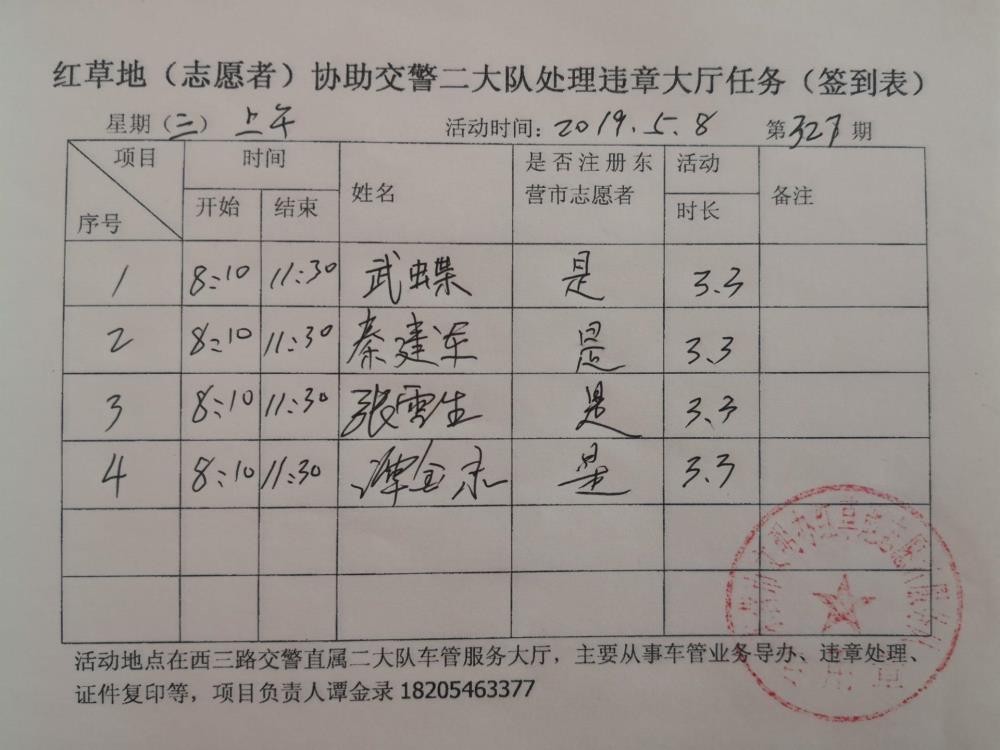 红草地（志愿者）协助交警二大队处理违章大厅任务（签到表）
星期（三） 上午 活动时间：2019.5.8 第327期
项目 时间 姓名 是否注册东营市志愿者 活动时长 备注
序号 开始 结束
1 8:10 11:30 武蝶 是 3.3
2 8:10 11:30 秦建东 是 3.3
3 8:10 11:30 张雪生 是 3.3
4 8:10 11:30 谭金录 是 3.3
活动地点在西三路交警直属二大队车管服务大厅，主要从事车管业务导办、违章处理、
证件复印等，项目负责人谭金录 18205463377